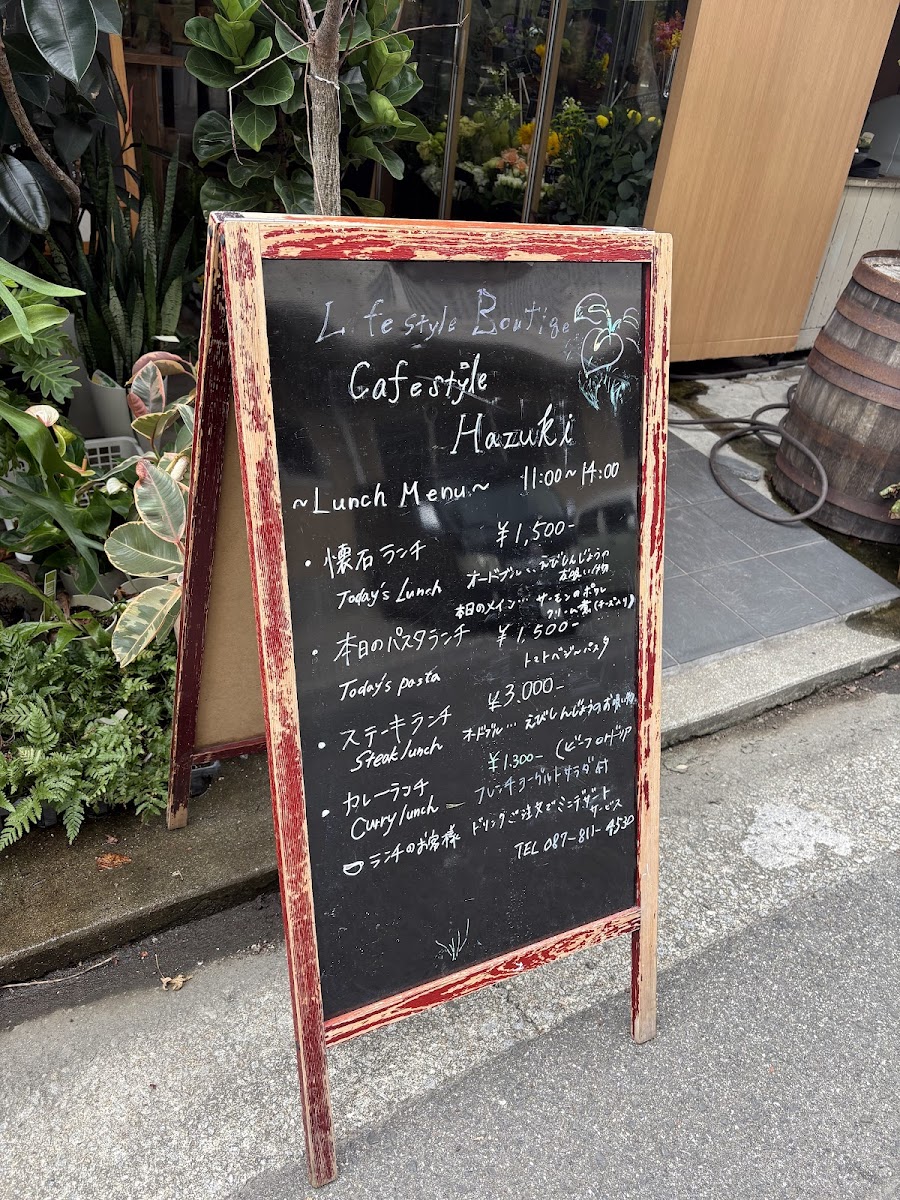 Lifestyle Boutiqe
Cafe style
Hazuki
~Lunch Menu~ 11:00~14:00
・懐石ランチ ¥1,500-
Today's Lunch オードブル… えびしんじょうの
お吸い物
本日のメイン… サーモンのポワレ
クリーム煮(チーズ入り)
・本日のパスタランチ ¥1,500-
Today's pasta トマトベジパスタ
・ステーキランチ ¥3,000-
Steak lunch オードブル… えびしんじょうのお吸い物
・カレーランチ ¥1,300-
Curry lunch フレンチヨーグルトサラダ付
ランチのお客様 ドリンクご注文でミニデザート
サービス
TEL 087-811-4530